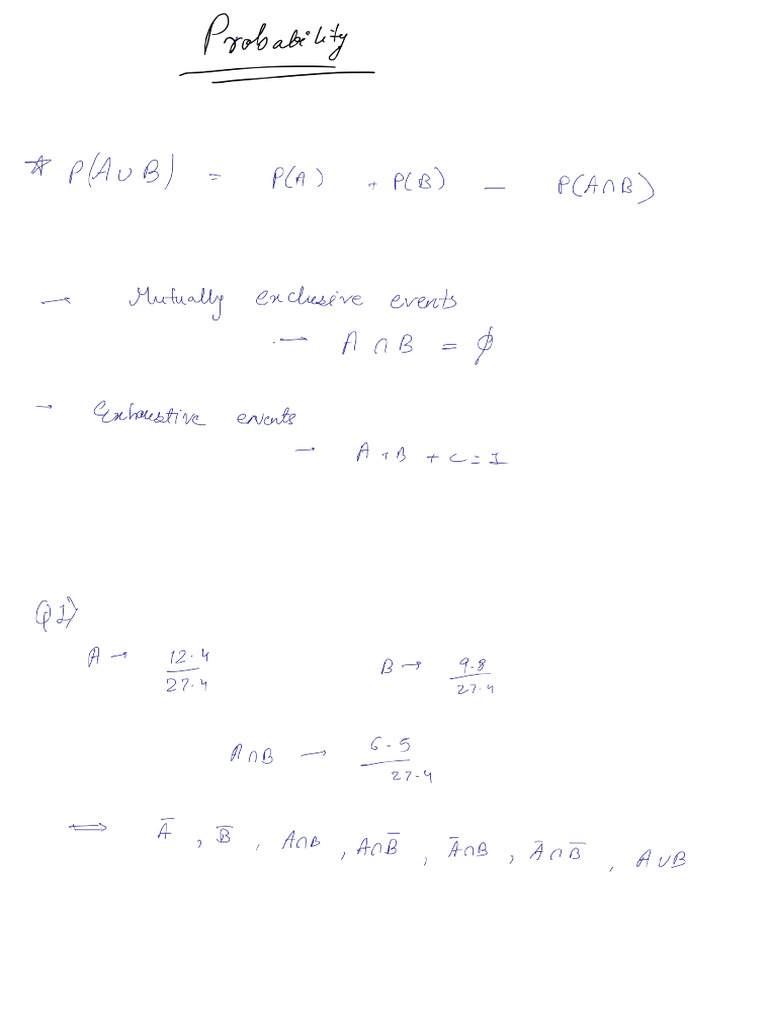 Probability
☆ P(A∪B) = P(A) + P(B) − P(A∩B)
→ Mutually exclusive events
→ A∩B = ϕ
→ Exhaustive events
→ A+B+C=1
Q1)
A → 12.4/27.4 B → 9.8/27.4
A∩B → 6.5/27.4
⟹ A̅, B̅, A∩B, A∩B̅, A̅∩B, A̅∩B̅, A∪B